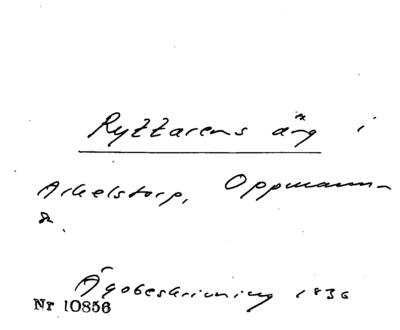 Ryttarens äng i
Arkelstorp, Oppmanna
sn.
Ägobeskrivning 1836
Nr 10856